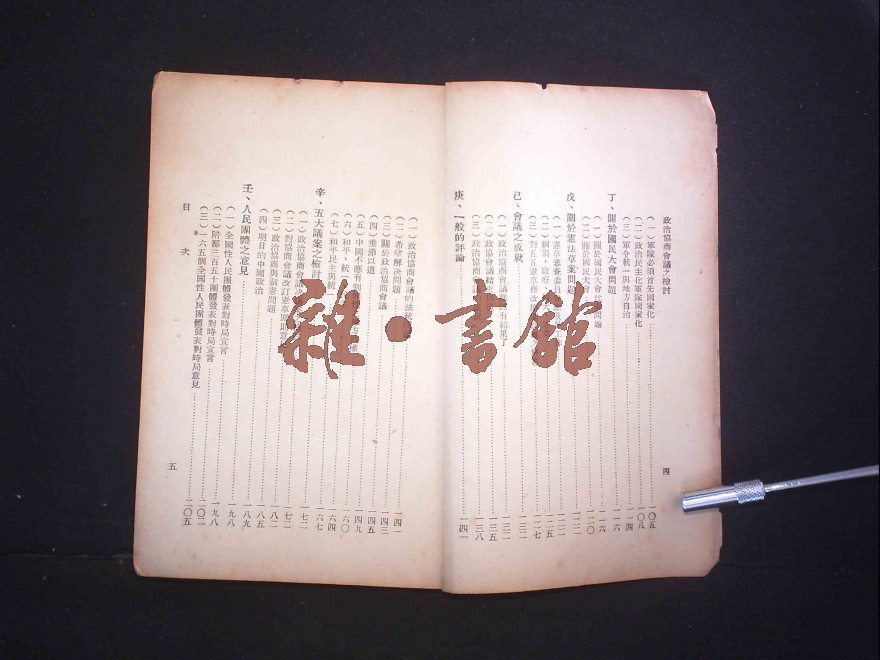 政治協商會議之檢討
(一)軍隊必須首先國家化……一〇五
(二)政治民主化軍隊國家化……一〇八
(三)軍令統一與地方自治……一一四
丁、關於國民大會問題……一一六
(一)關於國民大會 問題……一一六
(二)關於國民大會……一二〇
戊、關於憲法草案問題……一二二
(一)憲草審查委員……一二二
(二)綱領、政府、……一二五
(三)對五五憲草修改……一二七
己、會議之成就……一三二
(一)政治協商會議 有結果了……一三二
(二)政治協會議……一三五
(三)政治協商會議……一三八
庚、一般的評論……一四一
四
(一)政治協商會議的法統……一四一
(二)希望解決問題……一四一
(三)關於政治協商會議……一四三
(四)垂涕以道……一四五
(五)中國不應有割……一四九
(六)和平、統一、……一六〇
(七)和平民主與統一……一六四
辛、五大議案之檢討……一六七
(一)政治協商會議……一七二
(二)對協商會議改訂憲草原則……一七二
(三)政治協商與制憲問題……一八二
(四)明日的中國政治……一八五
壬、人民團體之意見……一八九
(一)全國性人民團體發表對時局宣言……一九八
(二)陪都三百五十團體發表對時局宣言……一九八
(三)一六五個全國性人民團體發表對時局意見……二〇二
……二〇五
目次
五
雜·書館